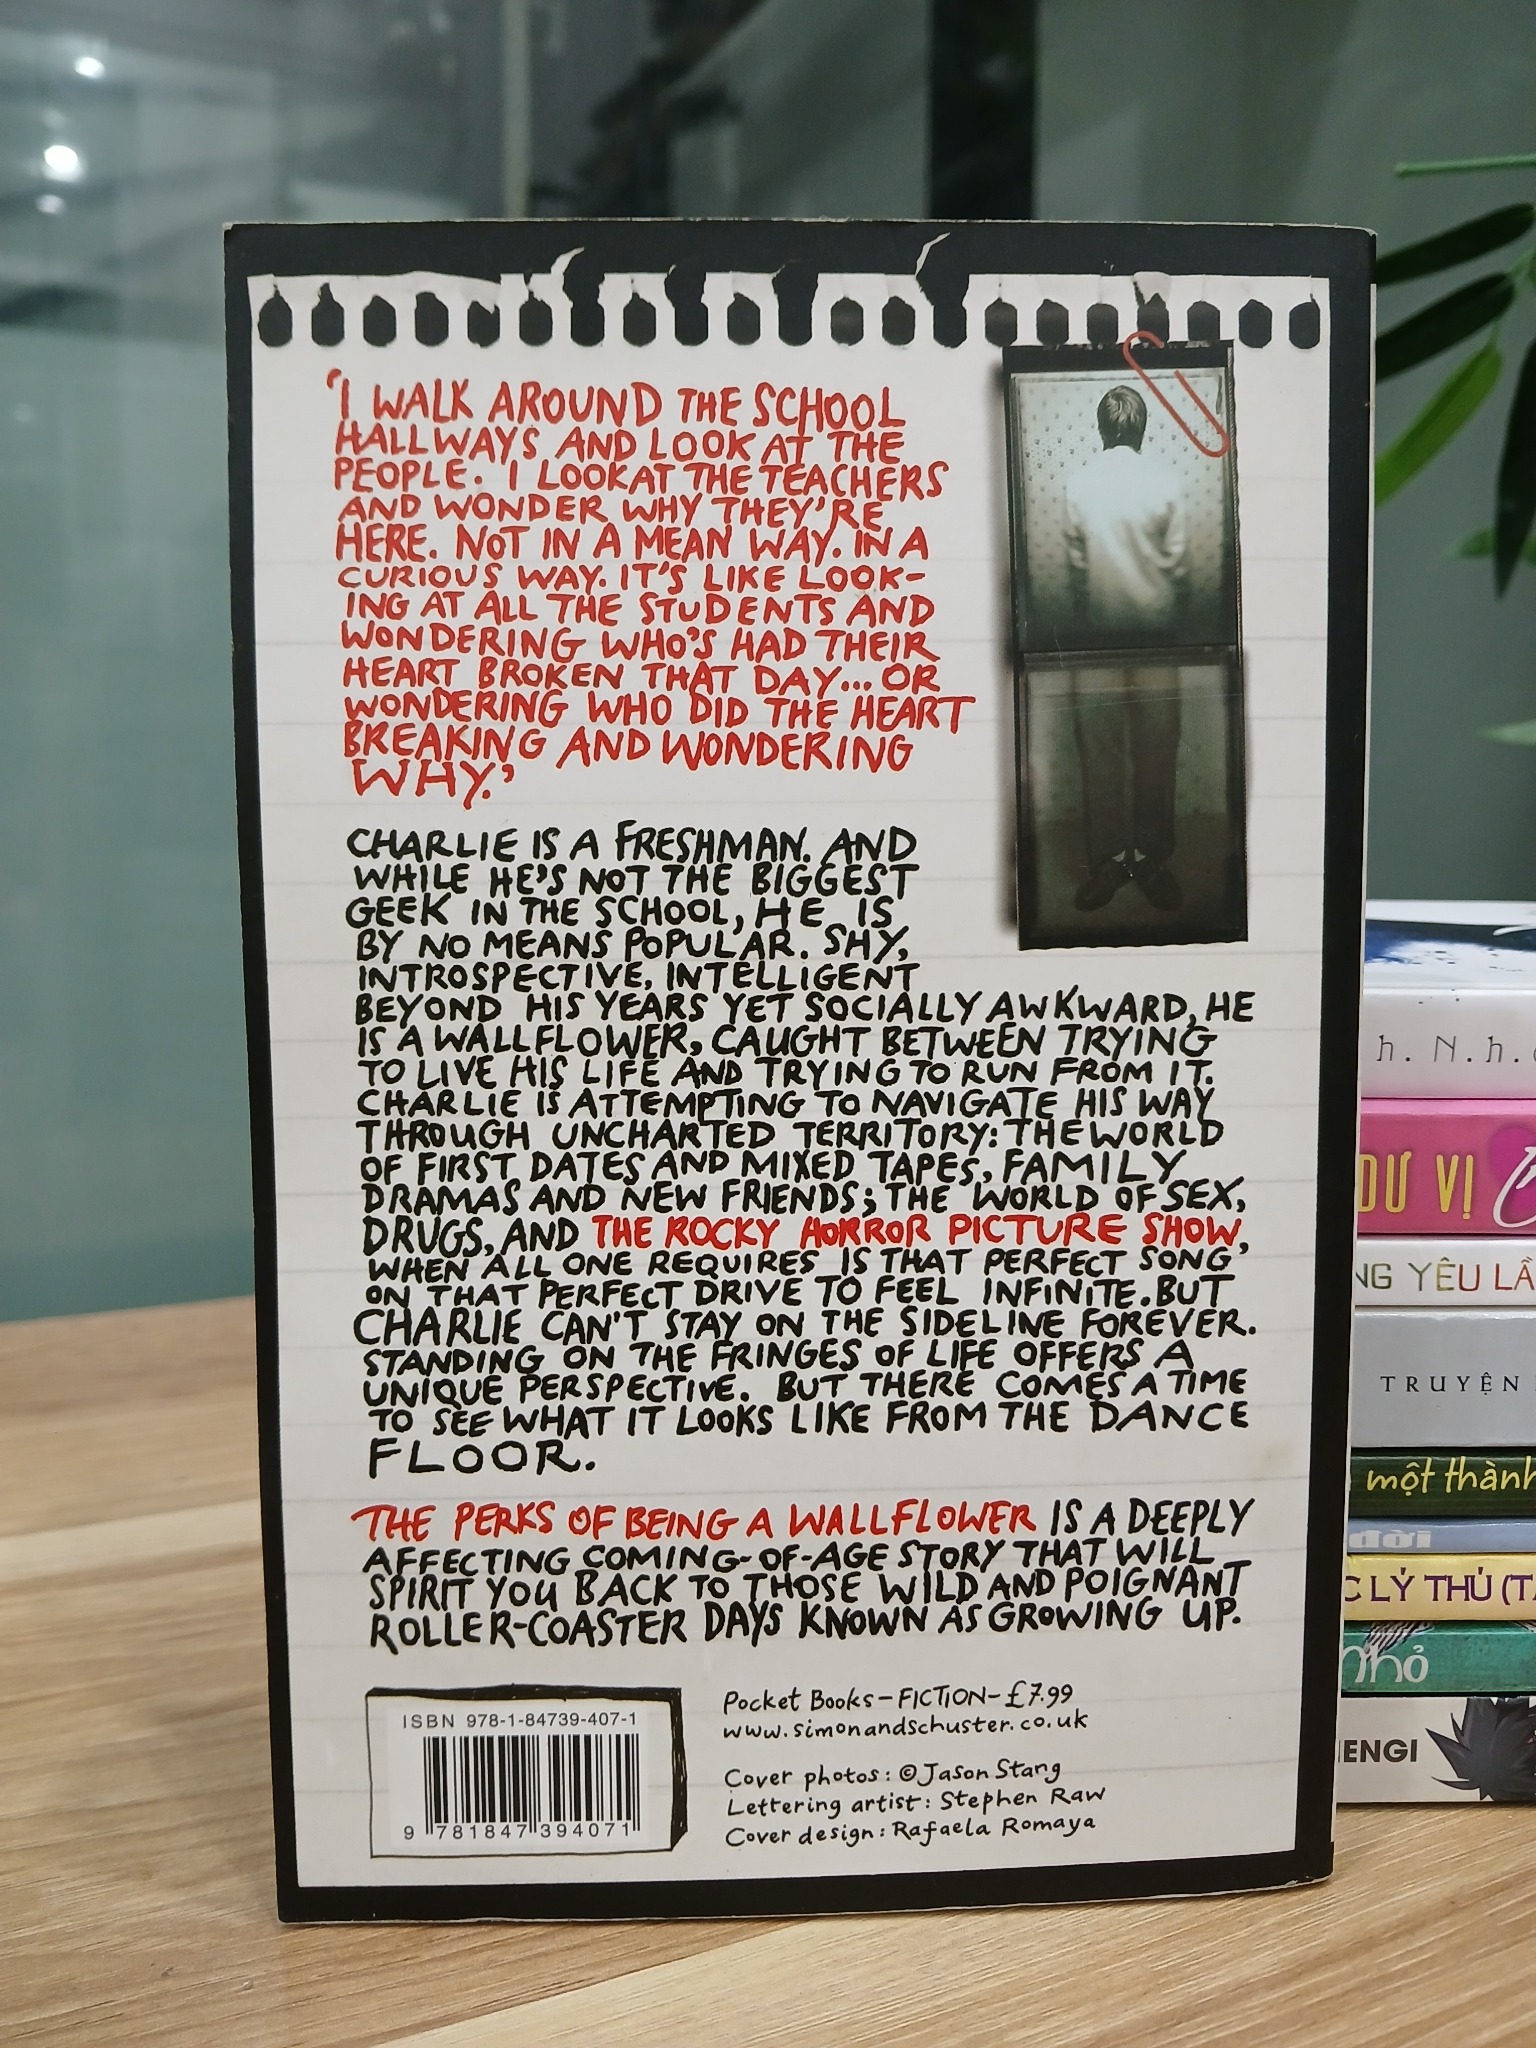 'I WALK AROUND THE SCHOOL
HALLWAYS AND LOOK AT THE
PEOPLE. I LOOK AT THE TEACHERS
AND WONDER WHY THEY'RE
HERE. NOT IN A MEAN WAY. IN A
CURIOUS WAY. IT'S LIKE LOOK-
ING AT ALL THE STUDENTS AND
WONDERING WHO'S HAD THEIR
HEART BROKEN THAT DAY... OR
WONDERING WHO DID THE HEART
BREAKING AND WONDERING
WHY.'
CHARLIE IS A FRESHMAN. AND
WHILE HE'S NOT THE BIGGEST
GEEK IN THE SCHOOL, HE IS
BY NO MEANS POPULAR. SHY,
INTROSPECTIVE, INTELLIGENT
BEYOND HIS YEARS YET SOCIALLY AWKWARD, HE
IS A WALLFLOWER, CAUGHT BETWEEN TRYING
TO LIVE HIS LIFE AND TRYING TO RUN FROM IT.
CHARLIE IS ATTEMPTING TO NAVIGATE HIS WAY
THROUGH UNCHARTED TERRITORY: THE WORLD
OF FIRST DATES AND MIXED TAPES, FAMILY
DRAMAS AND NEW FRIENDS; THE WORLD OF SEX,
DRUGS, AND THE ROCKY HORROR PICTURE SHOW,
WHEN ALL ONE REQUIRES IS THAT PERFECT SONG
ON THAT PERFECT DRIVE TO FEEL INFINITE. BUT
CHARLIE CAN'T STAY ON THE SIDELINE FOREVER.
STANDING ON THE FRINGES OF LIFE OFFERS A
UNIQUE PERSPECTIVE. BUT THERE COMES A TIME
TO SEE WHAT IT LOOKS LIKE FROM THE DANCE
FLOOR.
THE PERKS OF BEING A WALLFLOWER IS A DEEPLY
AFFECTING COMING-OF-AGE STORY THAT WILL
SPIRIT YOU BACK TO THOSE WILD AND POIGNANT
ROLLER-COASTER DAYS KNOWN AS GROWING UP.
ISBN 978-1-84739-407-1
9 781847 394071
Pocket Books-FICTION-£7.99
www.simonandschuster.co.uk
Cover photos: © Jason Stang
Lettering artist: Stephen Raw
Cover design: Rafaela Romaya
h. N.h.
DƯ VỊ
NG YÊU LẦ
TRUYỆN
một thành
đời
C LÝ THÚ (T
nhỏ
ENGI